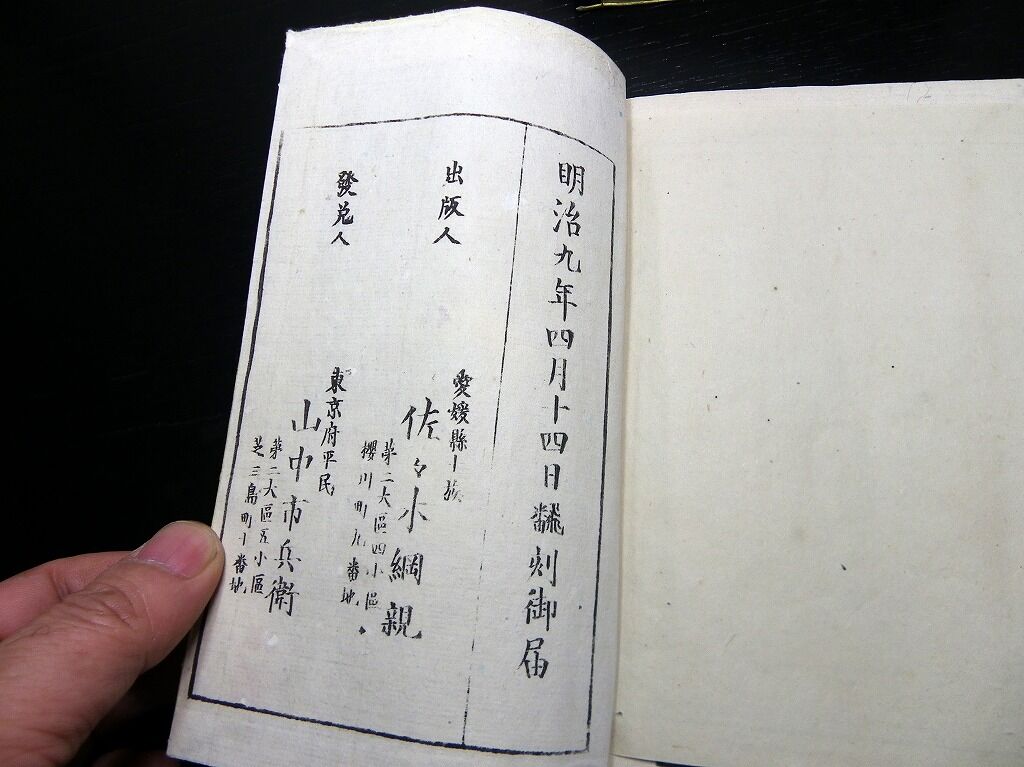 明治九年四月十四日飜刻御届
出版人
愛媛縣士族
佐々木綱親
第二大區四小區
櫻川町九番地
發兌人
東京府平民
山中市兵衛
第二大區五小區
芝三島町十番地